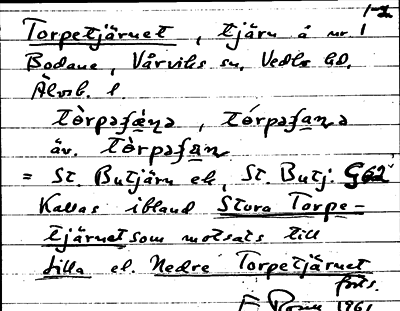 1-2
Torpetjärnet, tjärn å nr 1
Bodane, Vårviks sn, Vedbo hd,
Älvsb. l.
tòrpəʃæ̀ṇə, tórpəʃaṇə
äv. tòrpəʃaṇ
= St. Butjärn el. St. Butj. G62
Kallas ibland Stora Torpe-
tjärnet som motsats till
Lilla el. Nedre Torpetjärnet
forts.
1961